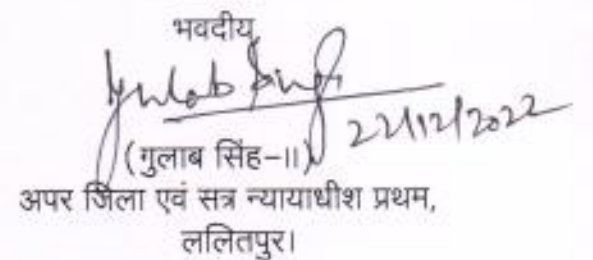 भवदीय,
Gulab Singh
22/12/2022
(गुलाब सिंह-II)
अपर जिला एवं सत्र न्यायाधीश प्रथम,
ललितपुर।